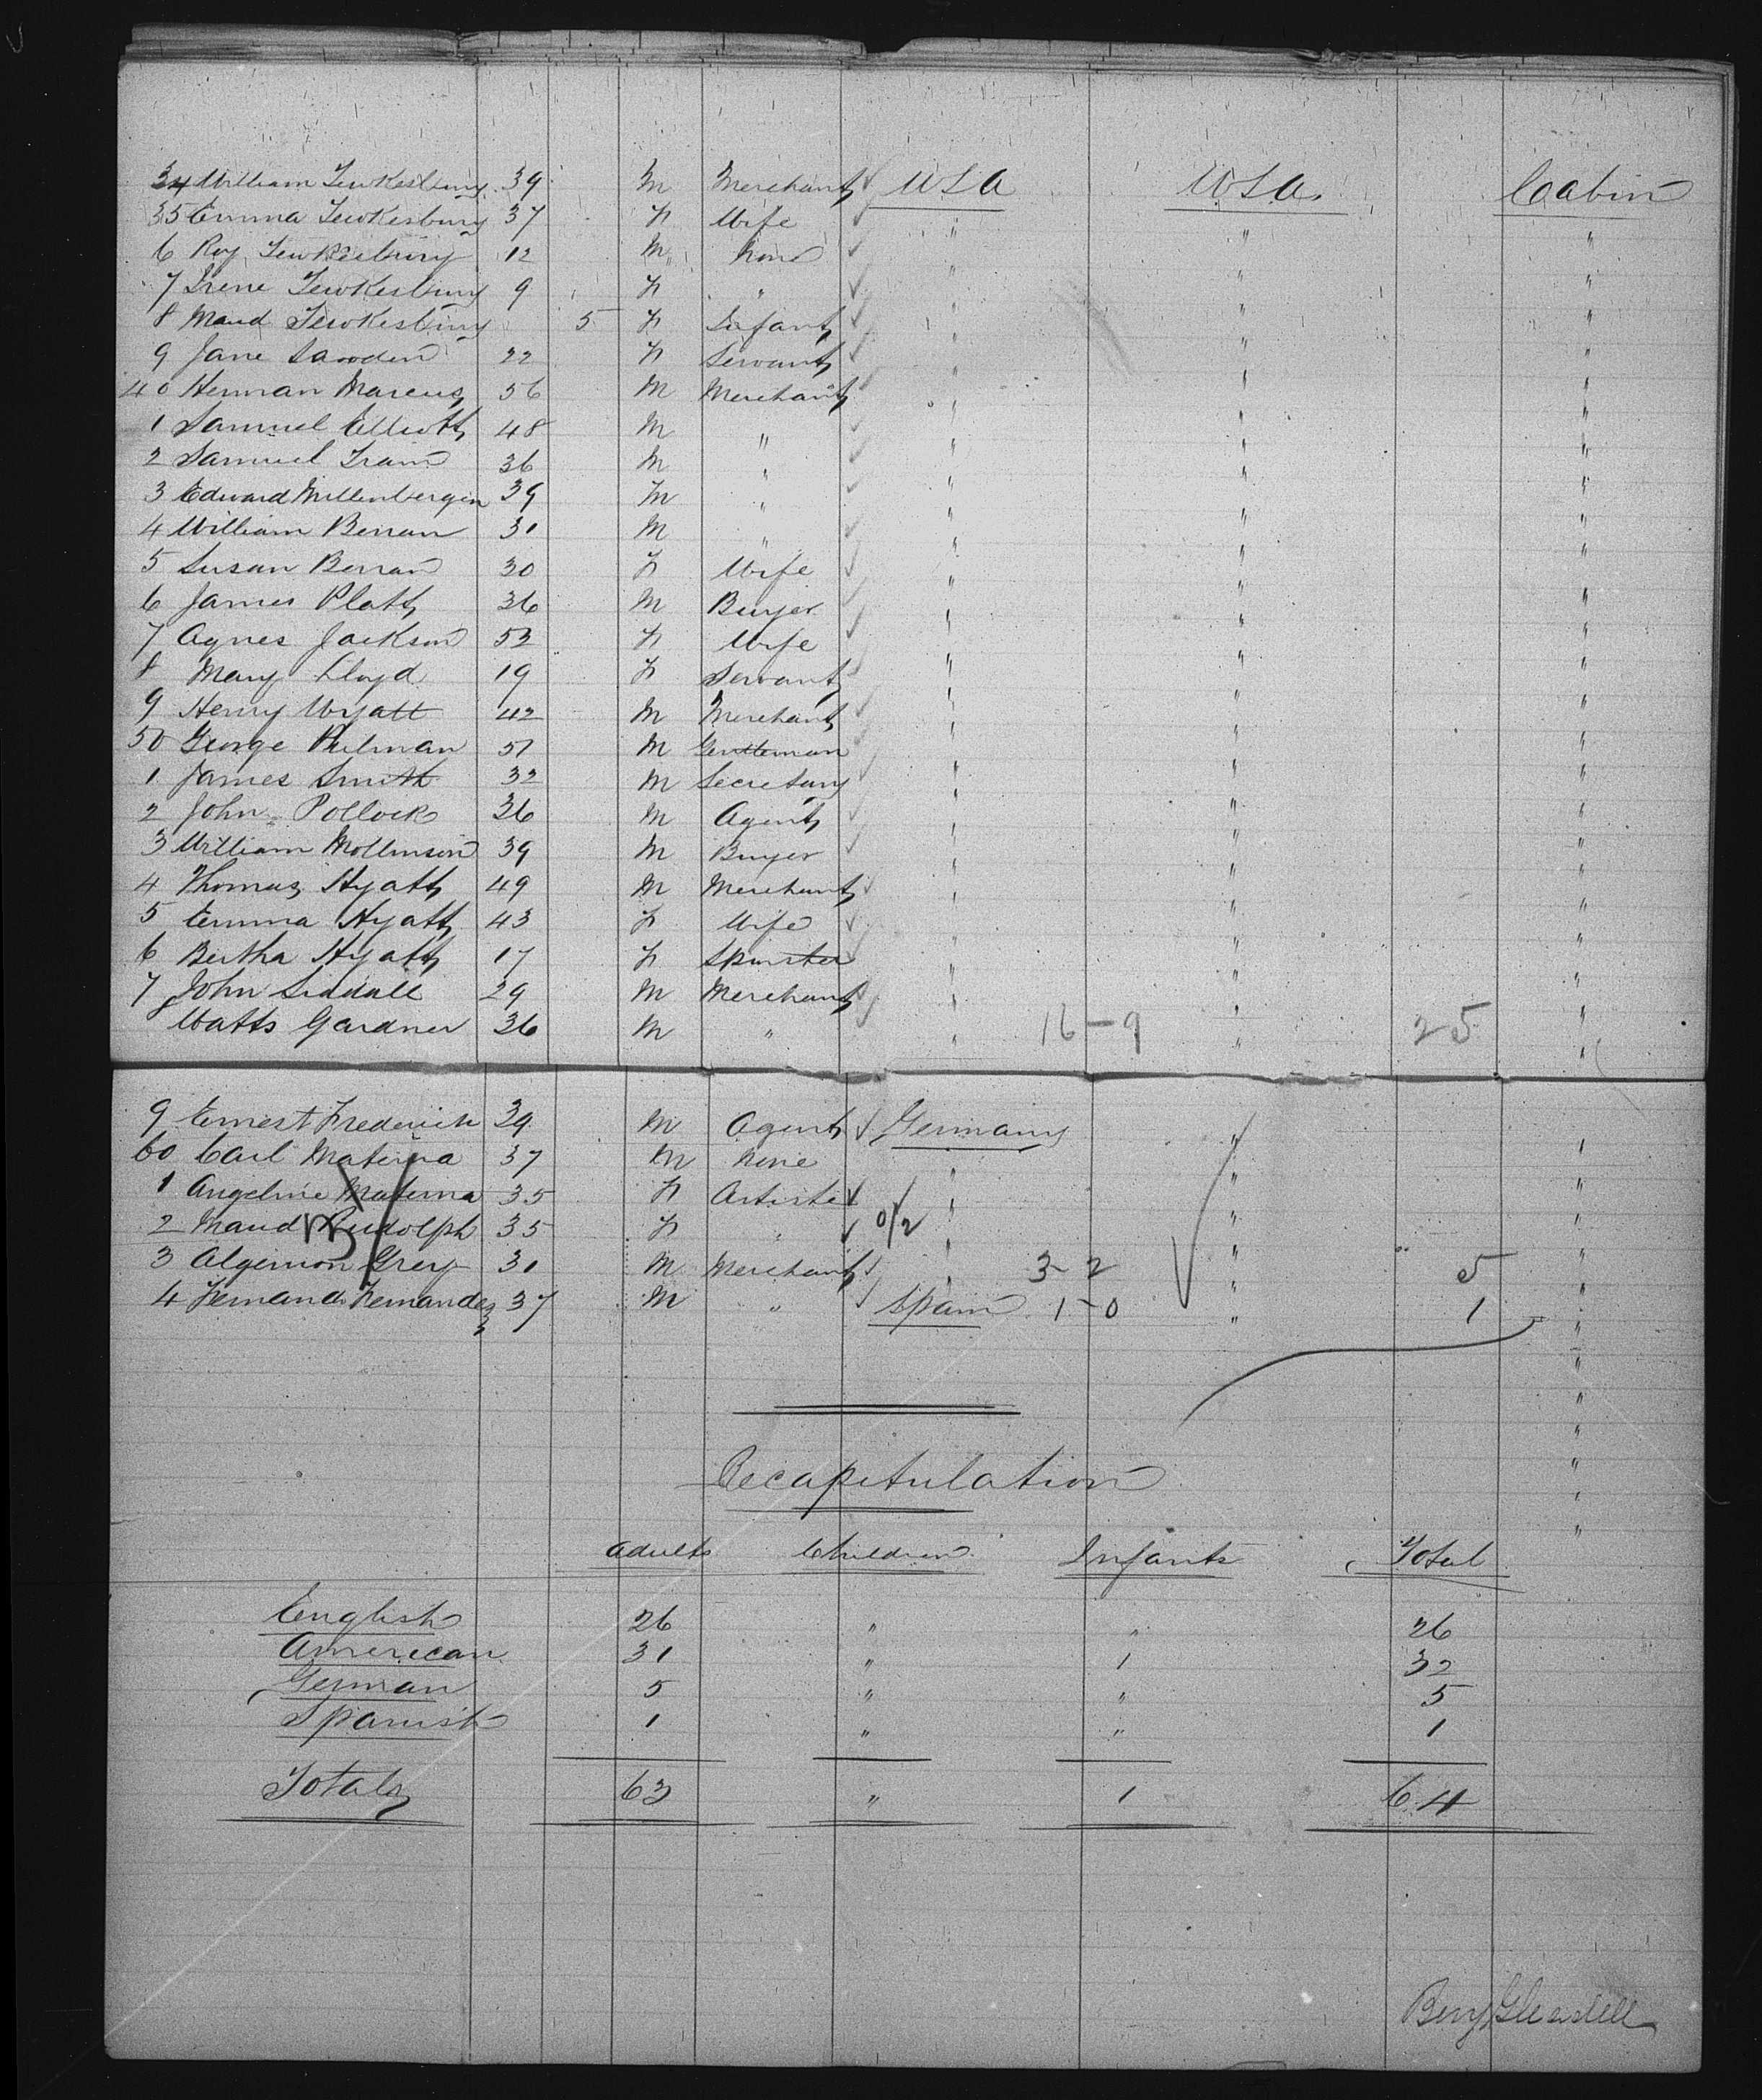 34 William Tewkesbury 39 M Merchant USA USA Cabin
35 Emma Tewkesbury 37 F Wife " " "
6 Roy Tewkesbury 12 M None " " "
7 Irene Tewkesbury 9 F " " " "
8 Maud Tewkesbury 5 F Infant " " "
9 Jane Sawden 22 F Servant " " "
40 Herman Marcus 56 M Merchant " " "
1 Samuel Elliott 48 M " " " "
2 Samuel Train 36 M " " " "
3 Edward 39 M " " " "
4 William Berran 31 M " " " "
5 Susan Berran 30 F Wife " " "
6 James Platt 36 M Buyer " " "
7 Agnes Jackson 53 F Wife " " "
8 Mary Lloyd 19 F Servant " " "
9 Henry Wyatt 42 M Merchant " " "
50 George Pulman 51 M Gentleman " " "
1 James Smith 32 M Secretary " " "
2 John Pollock 36 M Agent " " "
3 William Mollinson 39 M Buyer " " "
4 Thomas Hyatt 49 M Merchant " " "
5 Emma Hyatt 43 F Wife " " "
6 Bertha Hyatt 17 F Spinster " " "
7 John Siddall 29 M Merchant " " "
8 Watts Gardner 36 M " " 16-9 " 25 "
9 Ernest Frederick 39 M Agent Germany " "
60 Carl Materna 37 M None " " "
1 Angeline Materna 35 F Artiste " " "
2 Maud Rudolph 35 F " 0/2 " " "
3 Algernon Grey 31 M Merchant " 3-2 " 5 "
4 Fernando Fernandez 37 M " Spain 1-0 " 1 "
Recapitulation
Adults Children Infants Total
English 26 " " 26
American 31 " 1 32
German 5 " " 5
Spanish 1 " " 1
Totals 63 " 1 64